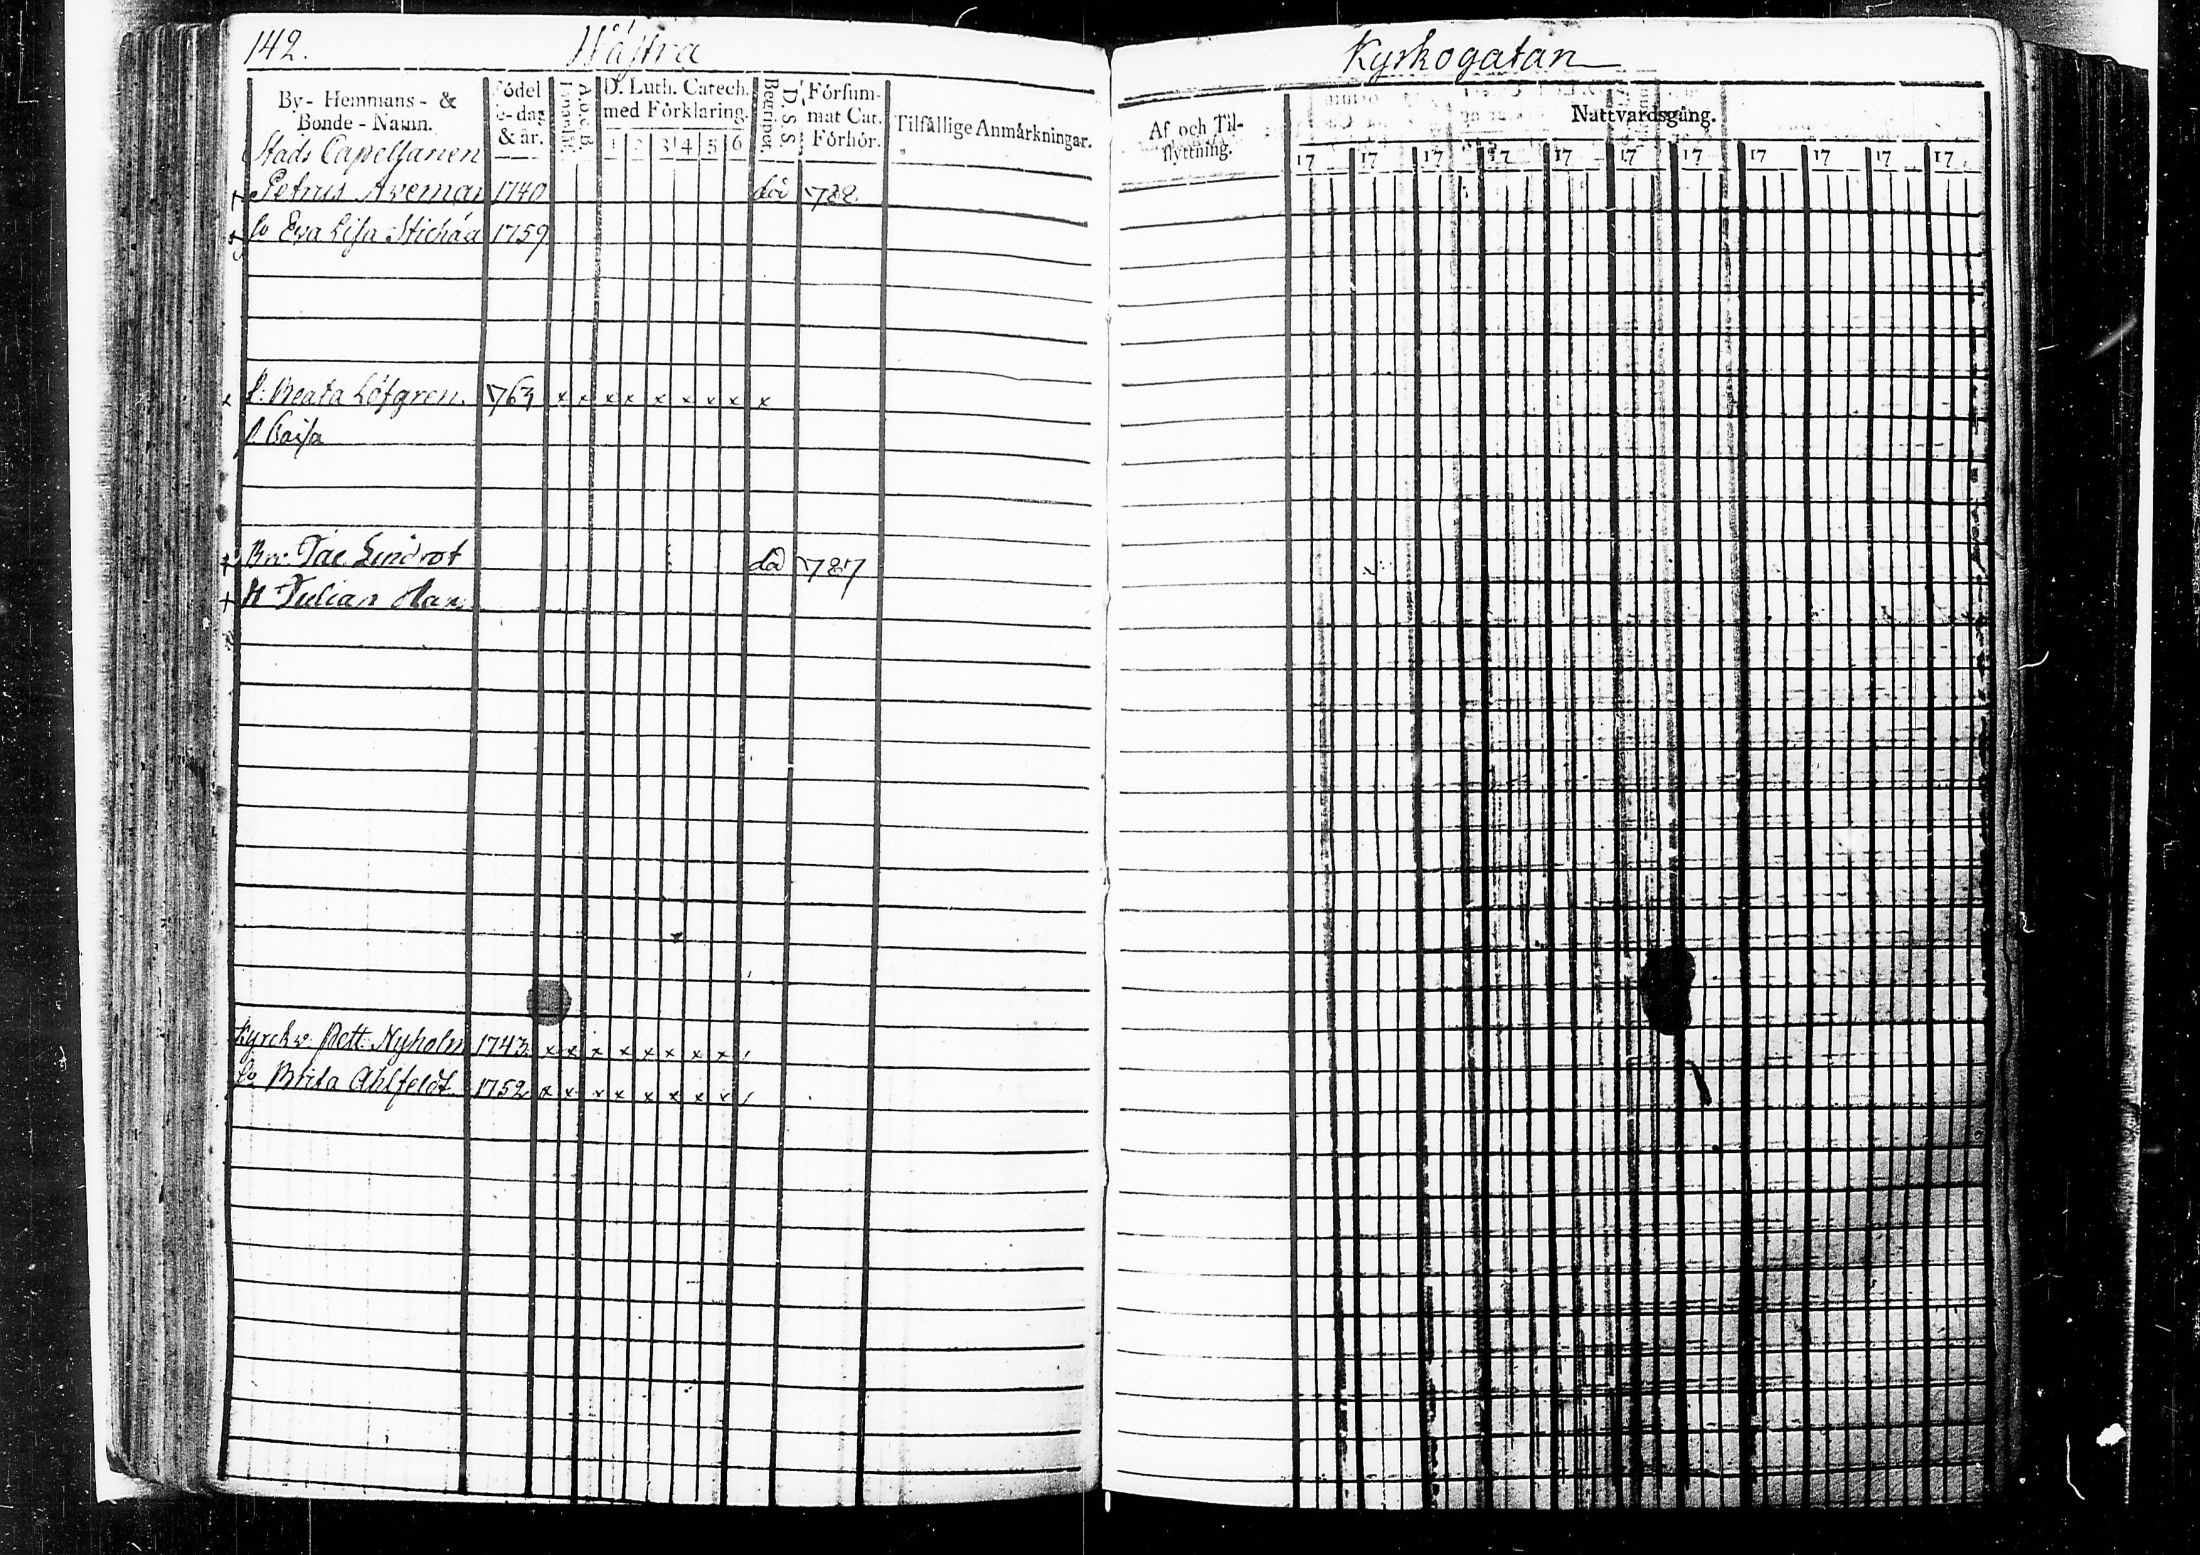 142. Wästra
By- Hemmans- &
Bonde-Namn.
Födel
se-dag
& år.
Innanläs.
A.b.c. B.
D. Luth. Catech.
med Förklaring.
1 2 3 4 5 6
Begripet.
D. S. S.
Försum-
mat Cat.
Förhör.
Tilfällige Anmärkningar.
Stads Capellanen
Petrus Aveman 1740 död 1788
ho Eva Lisa 1759
P. Beata Löfgren. 1763 x x x x x x x x x
P Caisa
Br: Jac. Lindrot död 1787
H Julian
Kyrckw. Pett. Nyholm 1743 x x x x x x x x
ho Brita Ahlfeldt 1752 x x x x x x x x
Kyrkogatan
Af och Til-
flyttning.
Nattvardsgång.
17 17 17 17 17 17 17 17 17 17 17